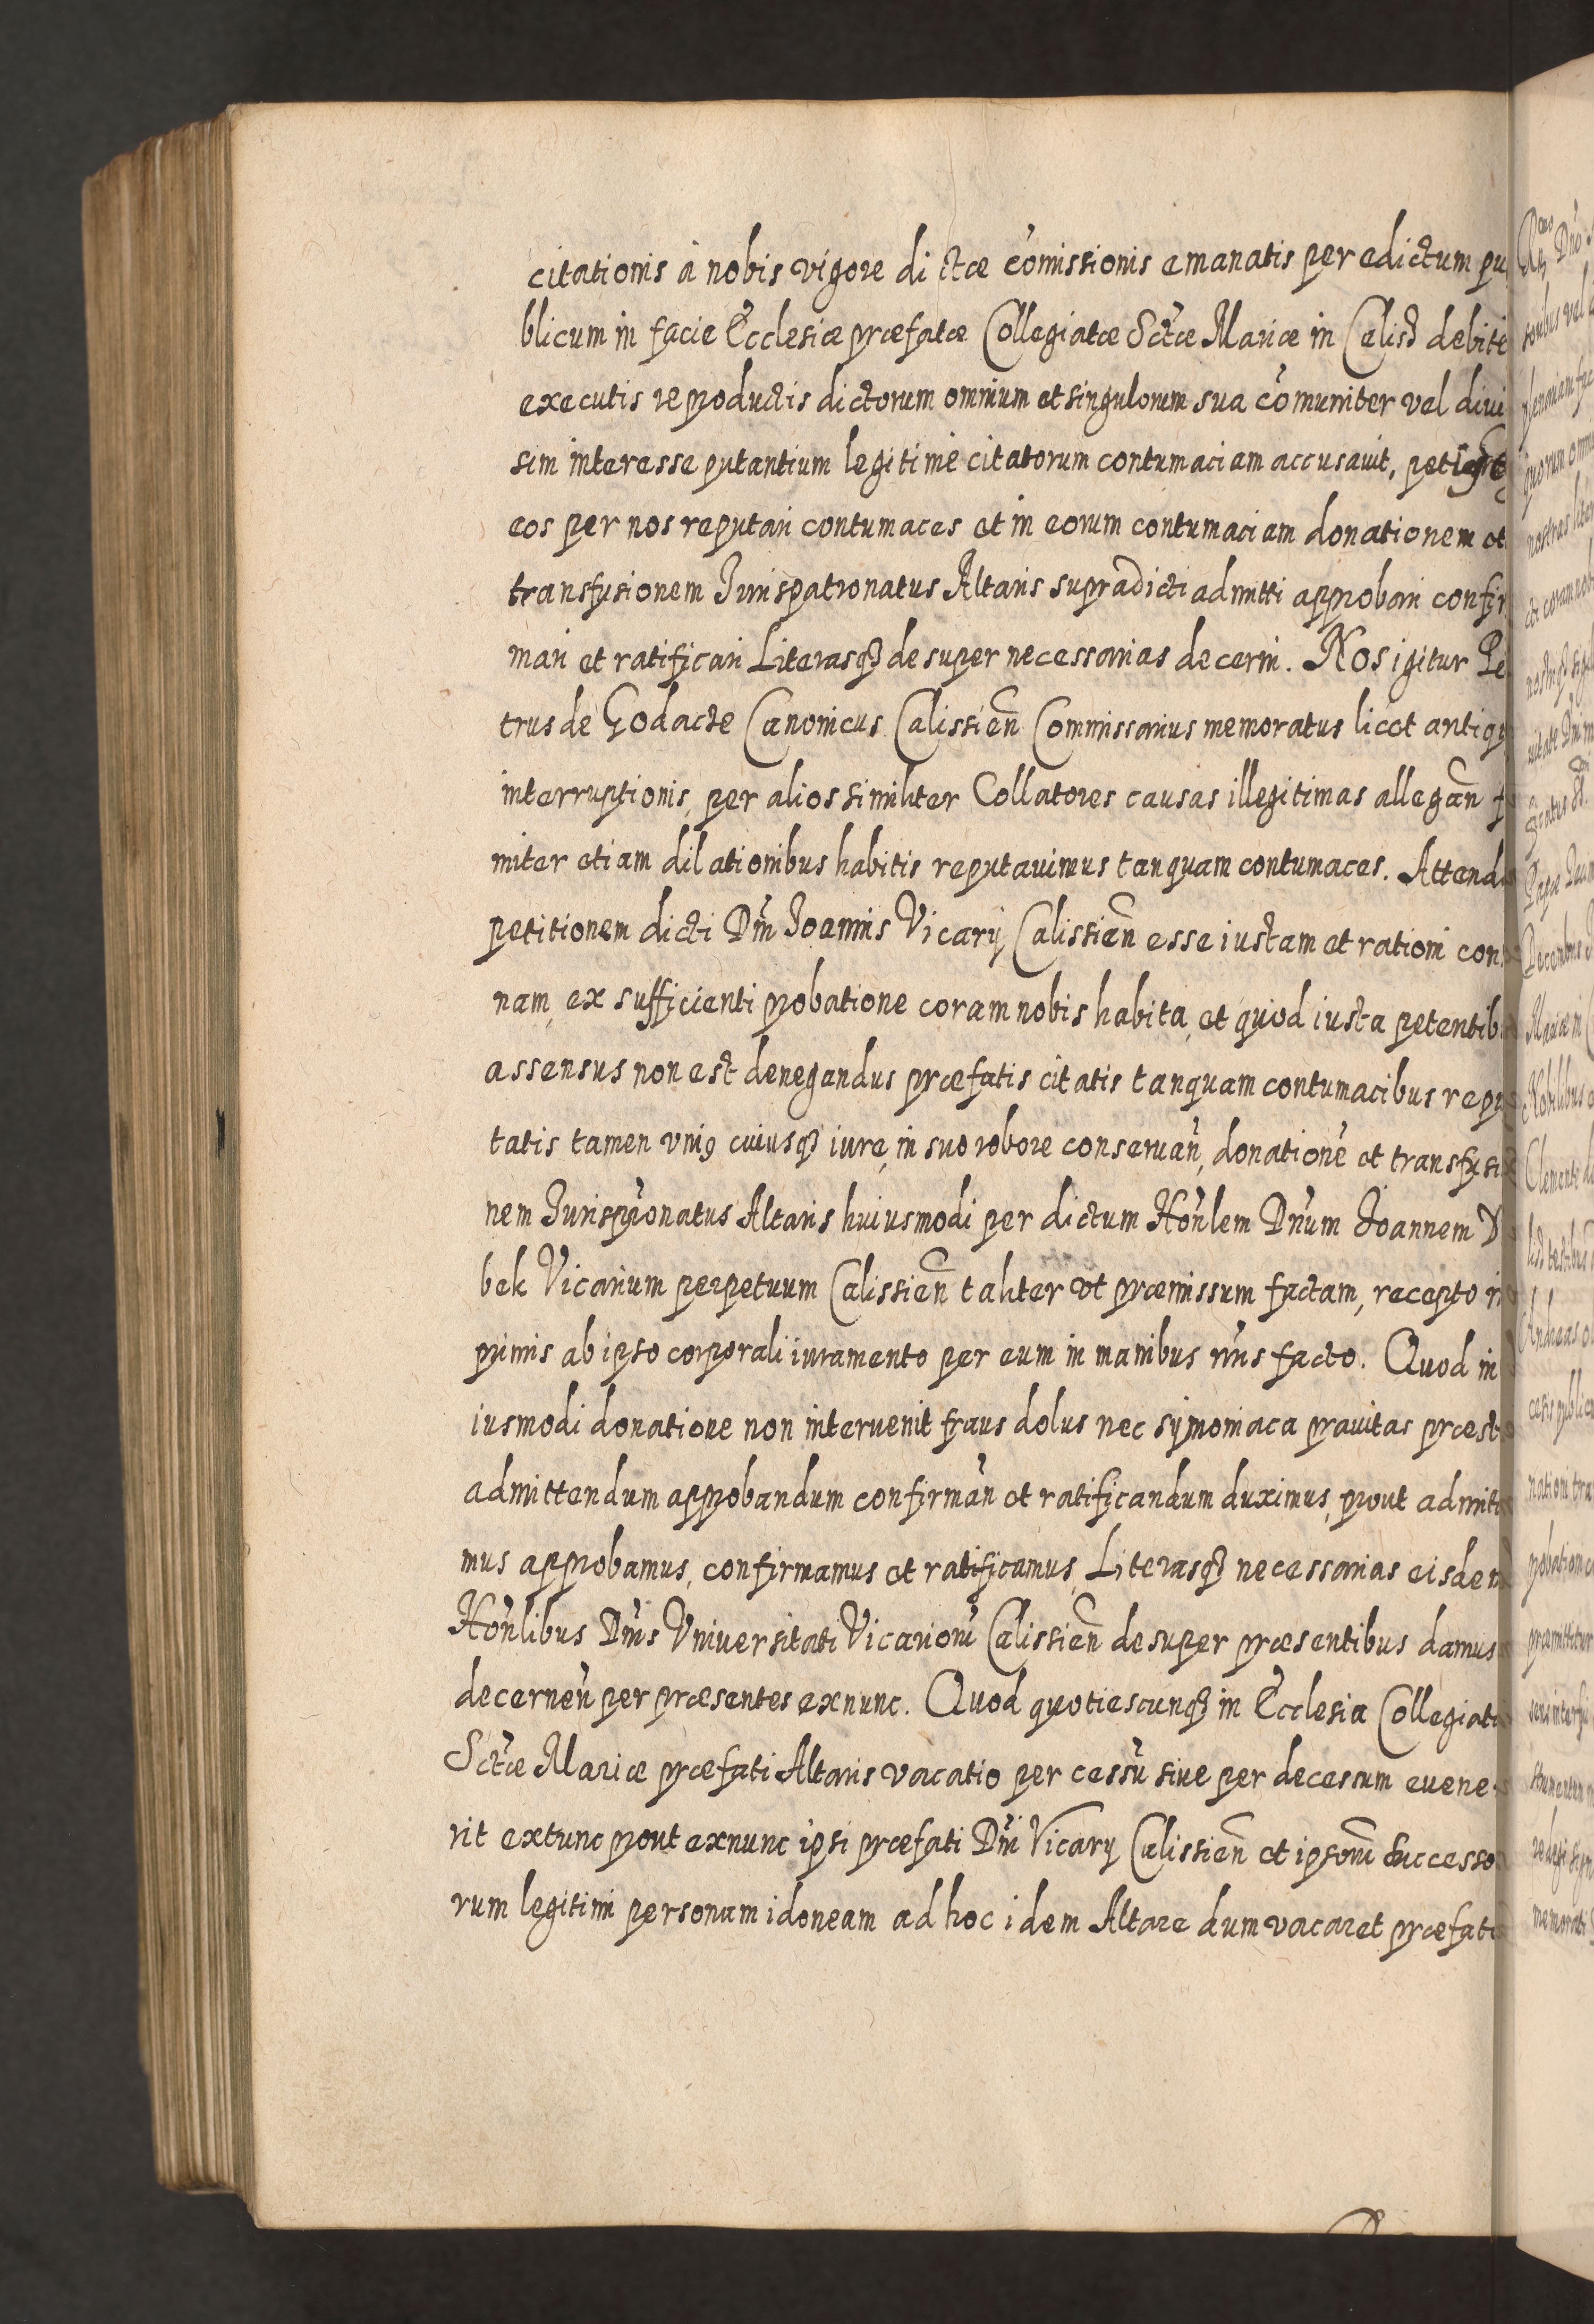 citationis à nobis vigore dictæ cōmissionis emanatis per edictum pu
blicum in facie Ecclesiæ præfatæ Collegiatæ Sctæ Mariæ in Calisz debite
executis reproductis dictorum omnium et singulorum sua cōmuniter vel divi
sim interesse putantium legitimè citatorum contumaciam accusavit,
eos per nos reputari contumaces et in eorum contumaciam donationem et
transfusionem Iurispatronatus Altaris supradicti admitti approbari confir
mari et ratificari Literasqꝫ desuper necessarias decerni. Nos igitur Pe
trus de Godacze Canonicus Calissieñ Commissarius memoratus licet antiqu
interruptionis, per alios similiter Collatores causas illegitimas allegañ
miter etiam dilationibus habitis reputavimus tanquam contumaces. Attend
petitionem dicti Dñi Ioannis Vicarÿ Calissieñ esse iustam et rationi con
nam, ex sufficienti probatione coram nobis habita, et quod iusta petentib
assensus non est denegandus præfatis citatis tanquam contumacibus repu
tatis tamen vniꝯ cuiusqꝫ iure, in suo robore conseruañ, donationē et transfusi
nem Iurisprōnatus Altaris huiusmodi per dictum Hoñlem Dñum Ioannem
bek Vicarium perpetuum Calissieñ taliter vt præmissum factam, recepto
primis ab ipso corporali iuramento per eum in manibus nr̄is facto. Quod in
iusmodi donatione non intervenit fraus dolus nec symoniaca pravitas præst
admittendum approbandum confirmañ et ratificandum duximus, prout admitti
mus approbamus, confirmamus et ratificamus, Literasqꝫ necessarias eisdem
Hoñlibus Dñis Vniversitati Vicariorū Calissieñ desuper præsentibus damus
decerneñ per præsentes exnunc. Quod quotiescunqꝫ in Ecclesia Collegiata
Sctæ Mariæ præfati Altaris vacatio per cessū siue per decessum euene
rit extunc prout exnunc ipsi præfati Dñi Vicarÿ Calissieñ et ipsorū Successo
rum legitimi personam idoneam ad hoc idem Altare dum vacaret præfat